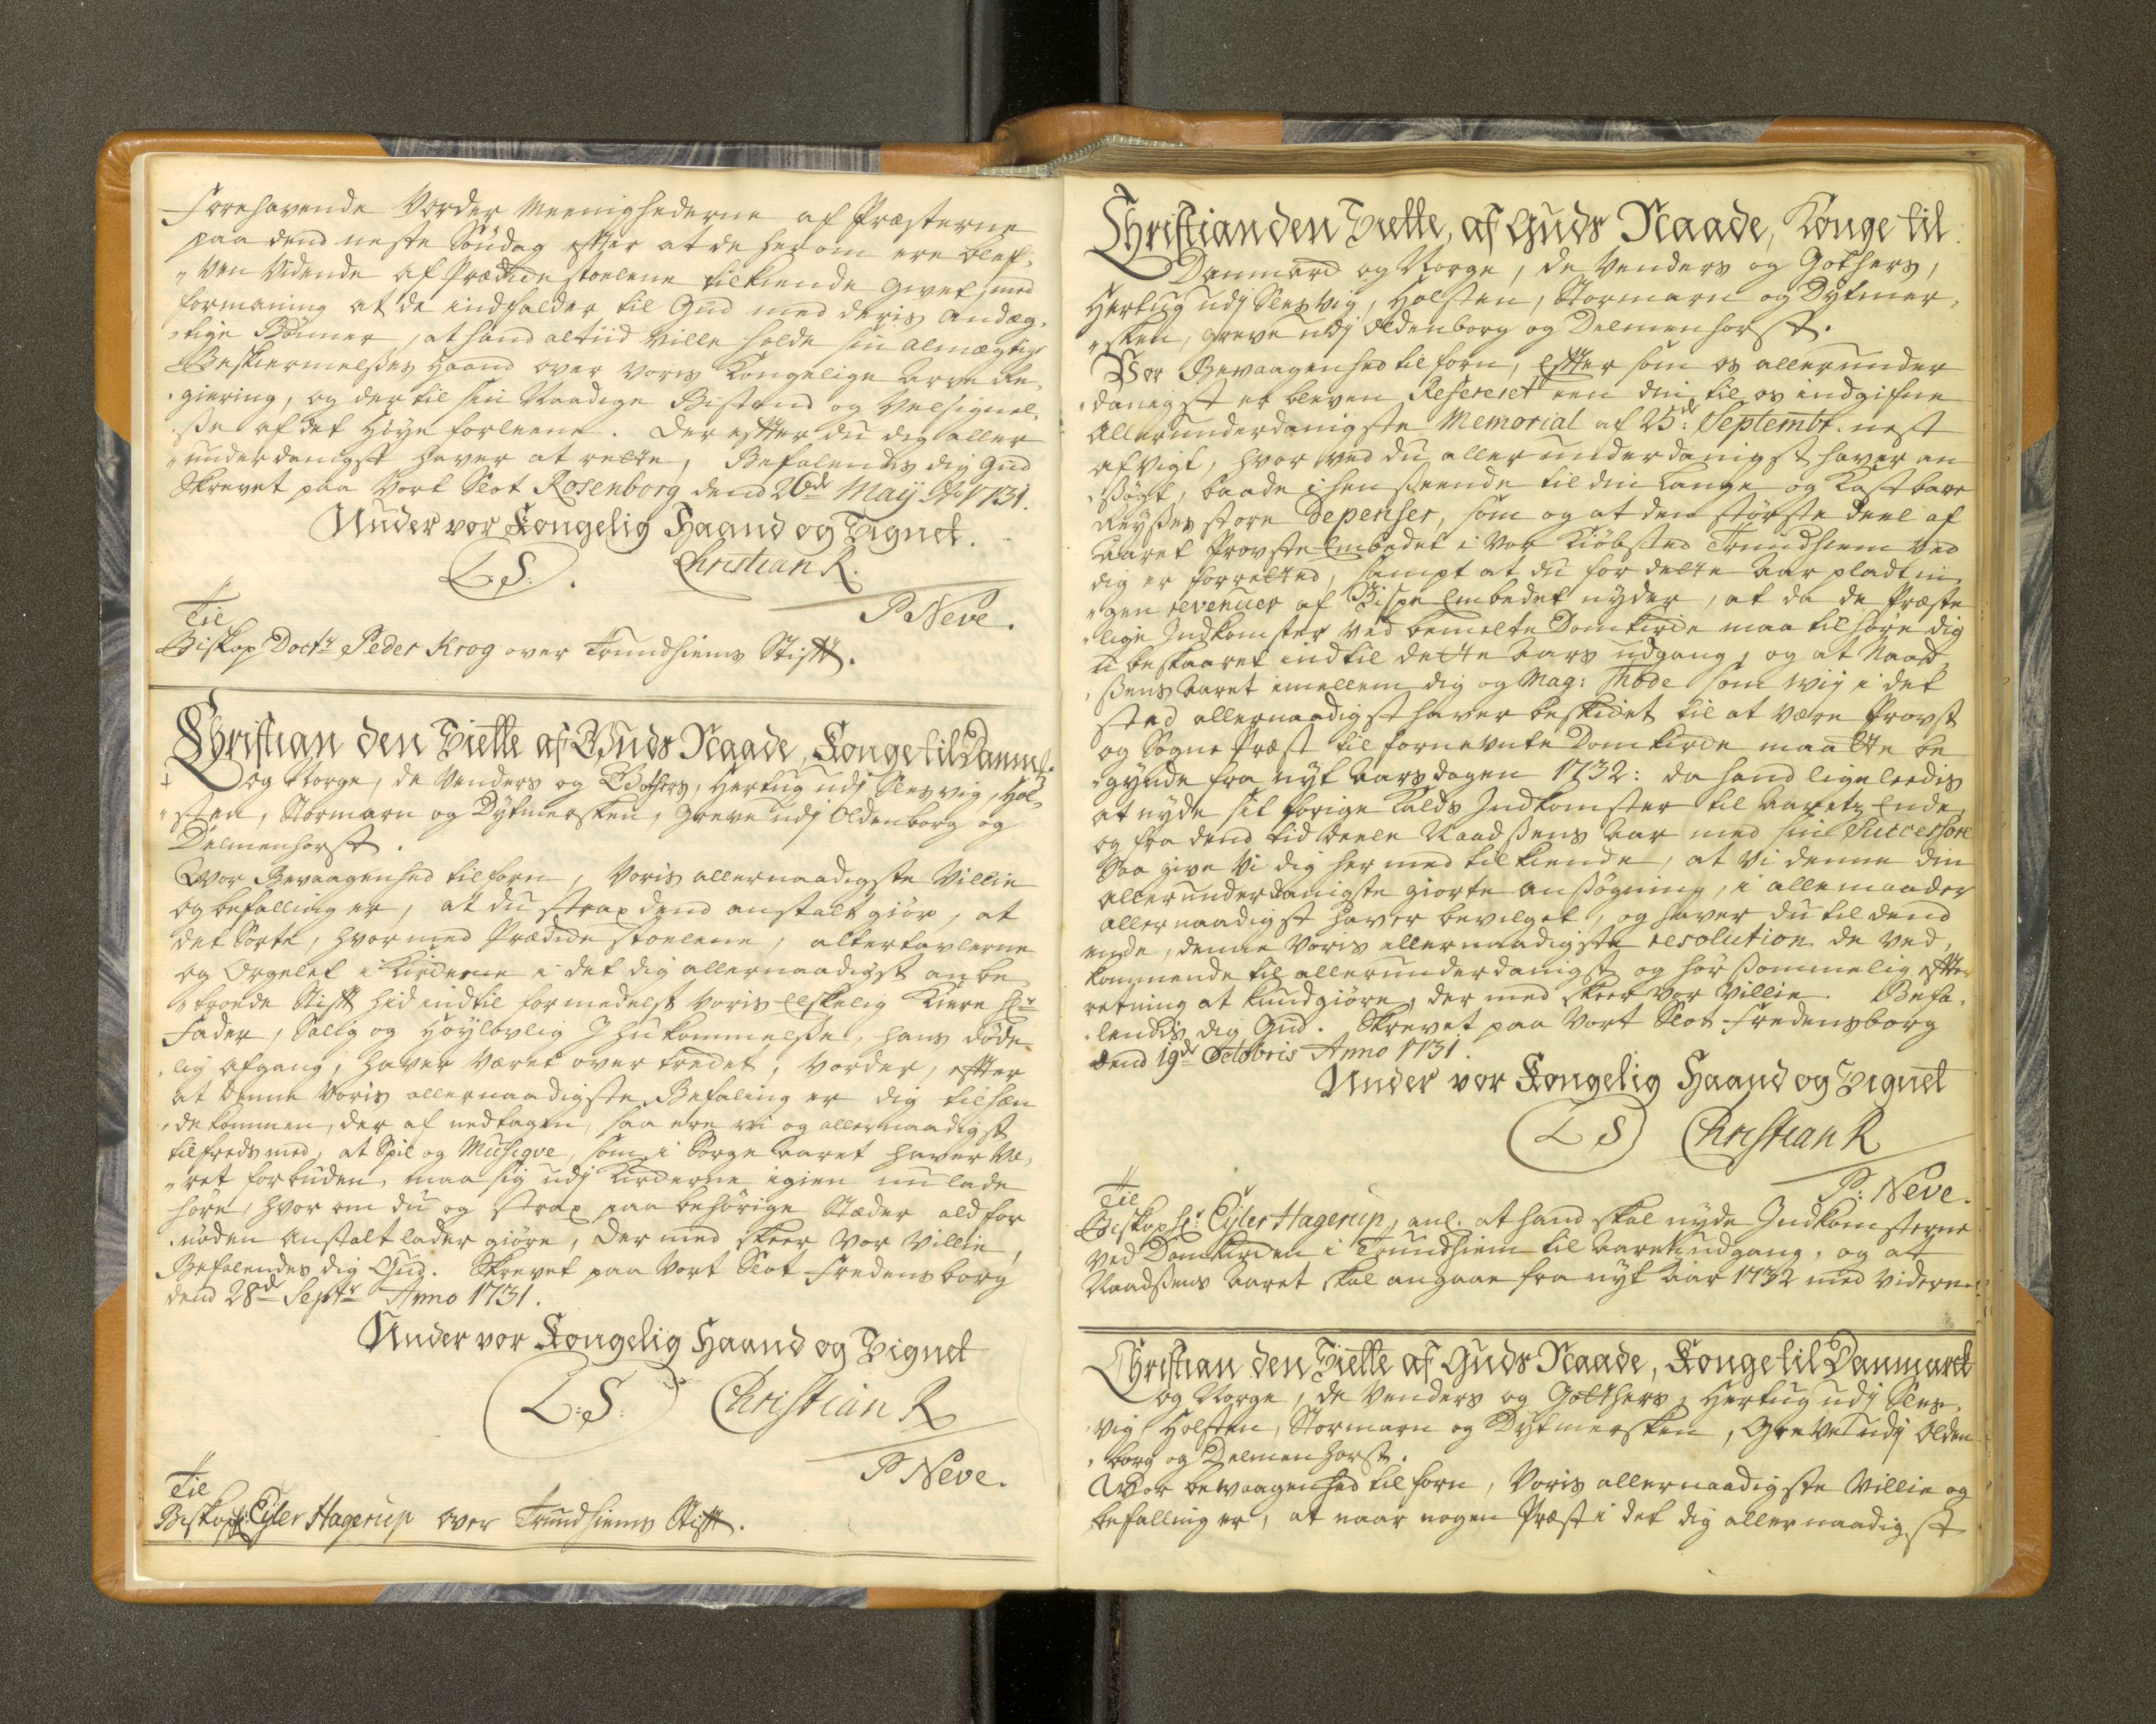 Forehavende Vorder Meenighederne af Præsterne
paa dend neste Søndag efter at de herom ere blef-
ven Vidende af Prædickestoelene tilkiende givet, med
formaning at de indfalder til Gud med deris andæg-
tige Bønner, at hand altiid ville holde sin almægtige
Beskiermelßes Haand over voris Kongelige arve Re-
giering, og der til sin Naadige Bistand og Velsignel-
ße af det Høye forleene. Der efter du dig aller
underdanigst haver at rette, Befalendes dig Gud
Skrevet paa Vort Slot Rosenborg dend 26de Maij Ao 1731.
Under vor Kongelig Haand og Signet.
L.S. Christian R.
P Neve.
Til
Biskop Doctr Peder Krog over Trundhiems Stift.
Christian den Siette af Guds Naade, Konge til Danmk
og Norge, de Venders og Gothers, Hertug udj Slesvig, Hol-
sten, Stormarn og Dytmersken, Greve udj Oldenborg og
Delmenhorst.
Vor Bevaagenhed tilforn, Voris allernaadigste Villie
og befalling er, at du strax dend anstalt giør, at
det Sorte, hvormed Prædickestoelene, altertavlerne
og Orgelet i Kirckerne i det dig allernaadigst anbe-
troede Stift hid indtil formedelst voris Elskelig Kiere Hr
Fader, Salig og Høylovlig Ihukommelße, hans døde-
lig afgang, haver været overtredet, vorder, efter
at denne Voris allernaadigste Befaling er dig tilhæn-
de kommen, der af nedtagen, saa ere vi og allernaadigst
tilfreds med, at Spil og Musiqve, som i Sørge aaret haver Væ-
ret forbuden, maa sig udj Kirckerne igien nu lade
høre, hvor om du og strax paa behørige Stæder ald for
nøden Anstalt lader giøre, Der med skeer Vor Villie,
Befalendes dig Gud. Skrevet paa Vort Slot Fredensborg
dend 28de Septr Anno 1731.
Under vor Kongelig Haand og Signet
L:S: Christian R
P Neve.
Til
Biskop Hr Eyler Hagerup over Trundhiems Stift.
Christian den Siette, af Guds Naade, Konge til
Danmarck og Norge, de Venders og Gothers,
Hertug udj Slesvig, Holsten, Stormarn og Dytmer-
sken, Greve udj Oldenborg og Delmenhorst.
Vor Bevaagenhed tilforn, Efter som os allerunder
danigst er bleven Refereret een din til os indgifne
Allerunderdanigste Memorial af 25de Septembr. nest
afvigt, hvor ved du allerunderdanigst haver an
ßøgt, baade i henseende til din Lange og Kostbare
Reyßes store Depenser, som og at den største deel af
Aaret Provste Embedet i Vor Kiøbsted Trundhiem ved
dig er forrettet, sampt at du for dette Aar pladt in-
gen revenuer af Bispe Embedet nyder, at da de Præste
lige Indkomster ved bemelte Domkircke maa tilhøre dig
ubeskaaret indtil dette aars udgang, og at Naad-
ßens aaret imellem dig og Mag: Thode som wij i det
sted allernaadigst haver beskicket til at være Provst
og Sogne Præst til fornevnte Domkircke maatte be
gynde fra nyt aars dagen 1732: da hand ligeleedis
at nyde sit forige Kalds Indkomster til aarets Ende,
og fra dend tid deele Naadßens Aar med sin Successore
Saa give Vi dig her med tilkiende, at Vi denne din
allerunderdanigste giorte ansøgning, i alle maader
allernaadigst haver bevilget, og haver du til dend
ende, denne Voris allernaadigste resolution de ved-
kommende til allerunderdanigst og hørsommelig efter
retning at kundgiøre, der med skeer vor Villie. Befa-
lendis dig Gud. Skrevet paa Vort Slot Fredensborg
dend 19de Octobris Anno 1731.
Under vor Kongelig Haand og Signet
L S Christian R
P: Neve.
Til
Biskop Hr Eyler Hagerup, anl. at hand skal nyde Indkomsterne
ved Domkircken i Trundhiem til aarets udgang, og at
Naadßens Aaret skal angaae fra nyt Aar 1732 med videre.
Christian den Siette af Guds Naade, Konge til Danmarck
og Norge, de Venders og Gotthers, Hertug udj Sles-
vig, Holsten, Stormarn og Dytmersken, Greve udj Olden
borg og Delmenhorst.
Vor bevaagenhed tilforn, Voris allernaadigste Villie og
befalling er, at naar nogen Præst i det dig allernaadigst